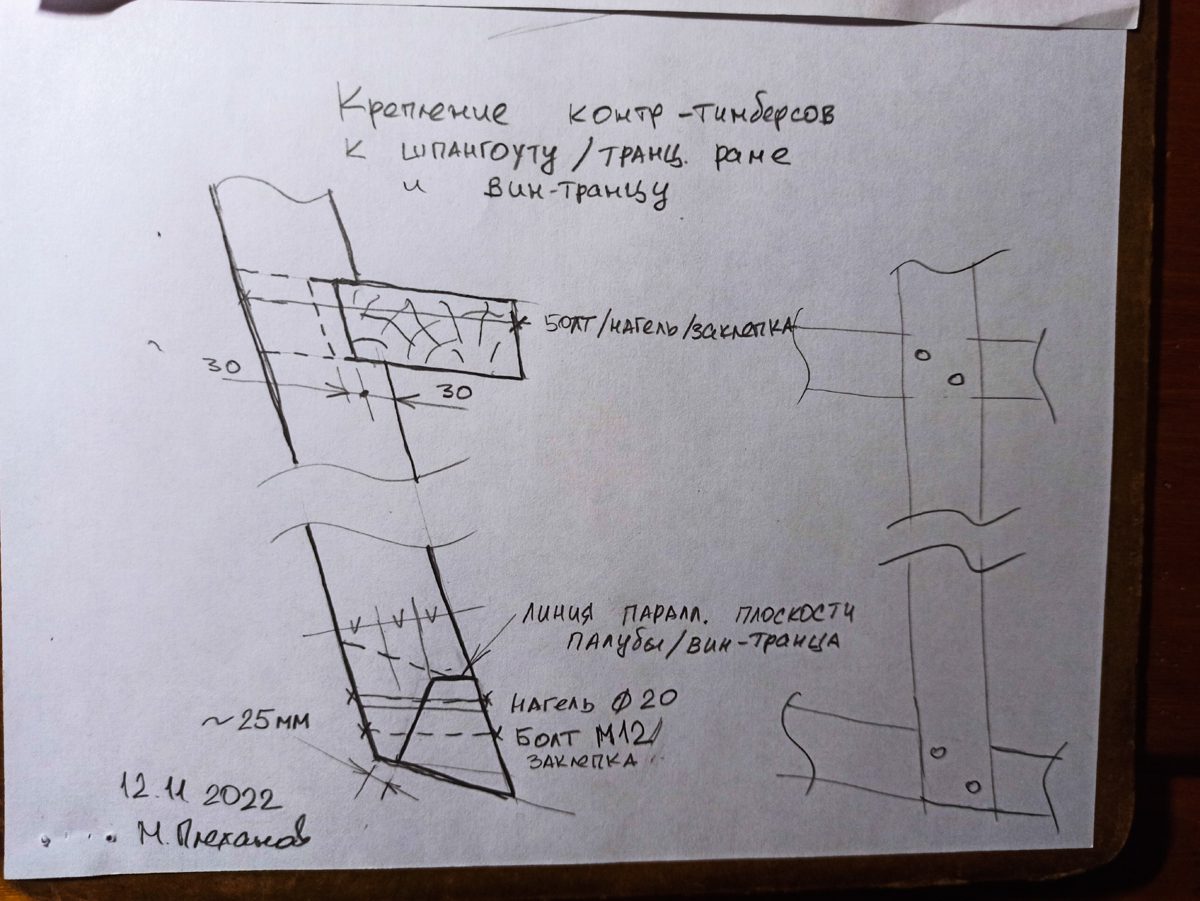 Крепление контр-тимберсов
к шпангоуту/транц. раме
и вин-транцу
болт/нагель/заклепка
30
30
линия паралл. плоскости
палубы/вин-транца
нагель ф 20
~25мм
болт М12/
заклепка
12.11 2022
М.Плеханов